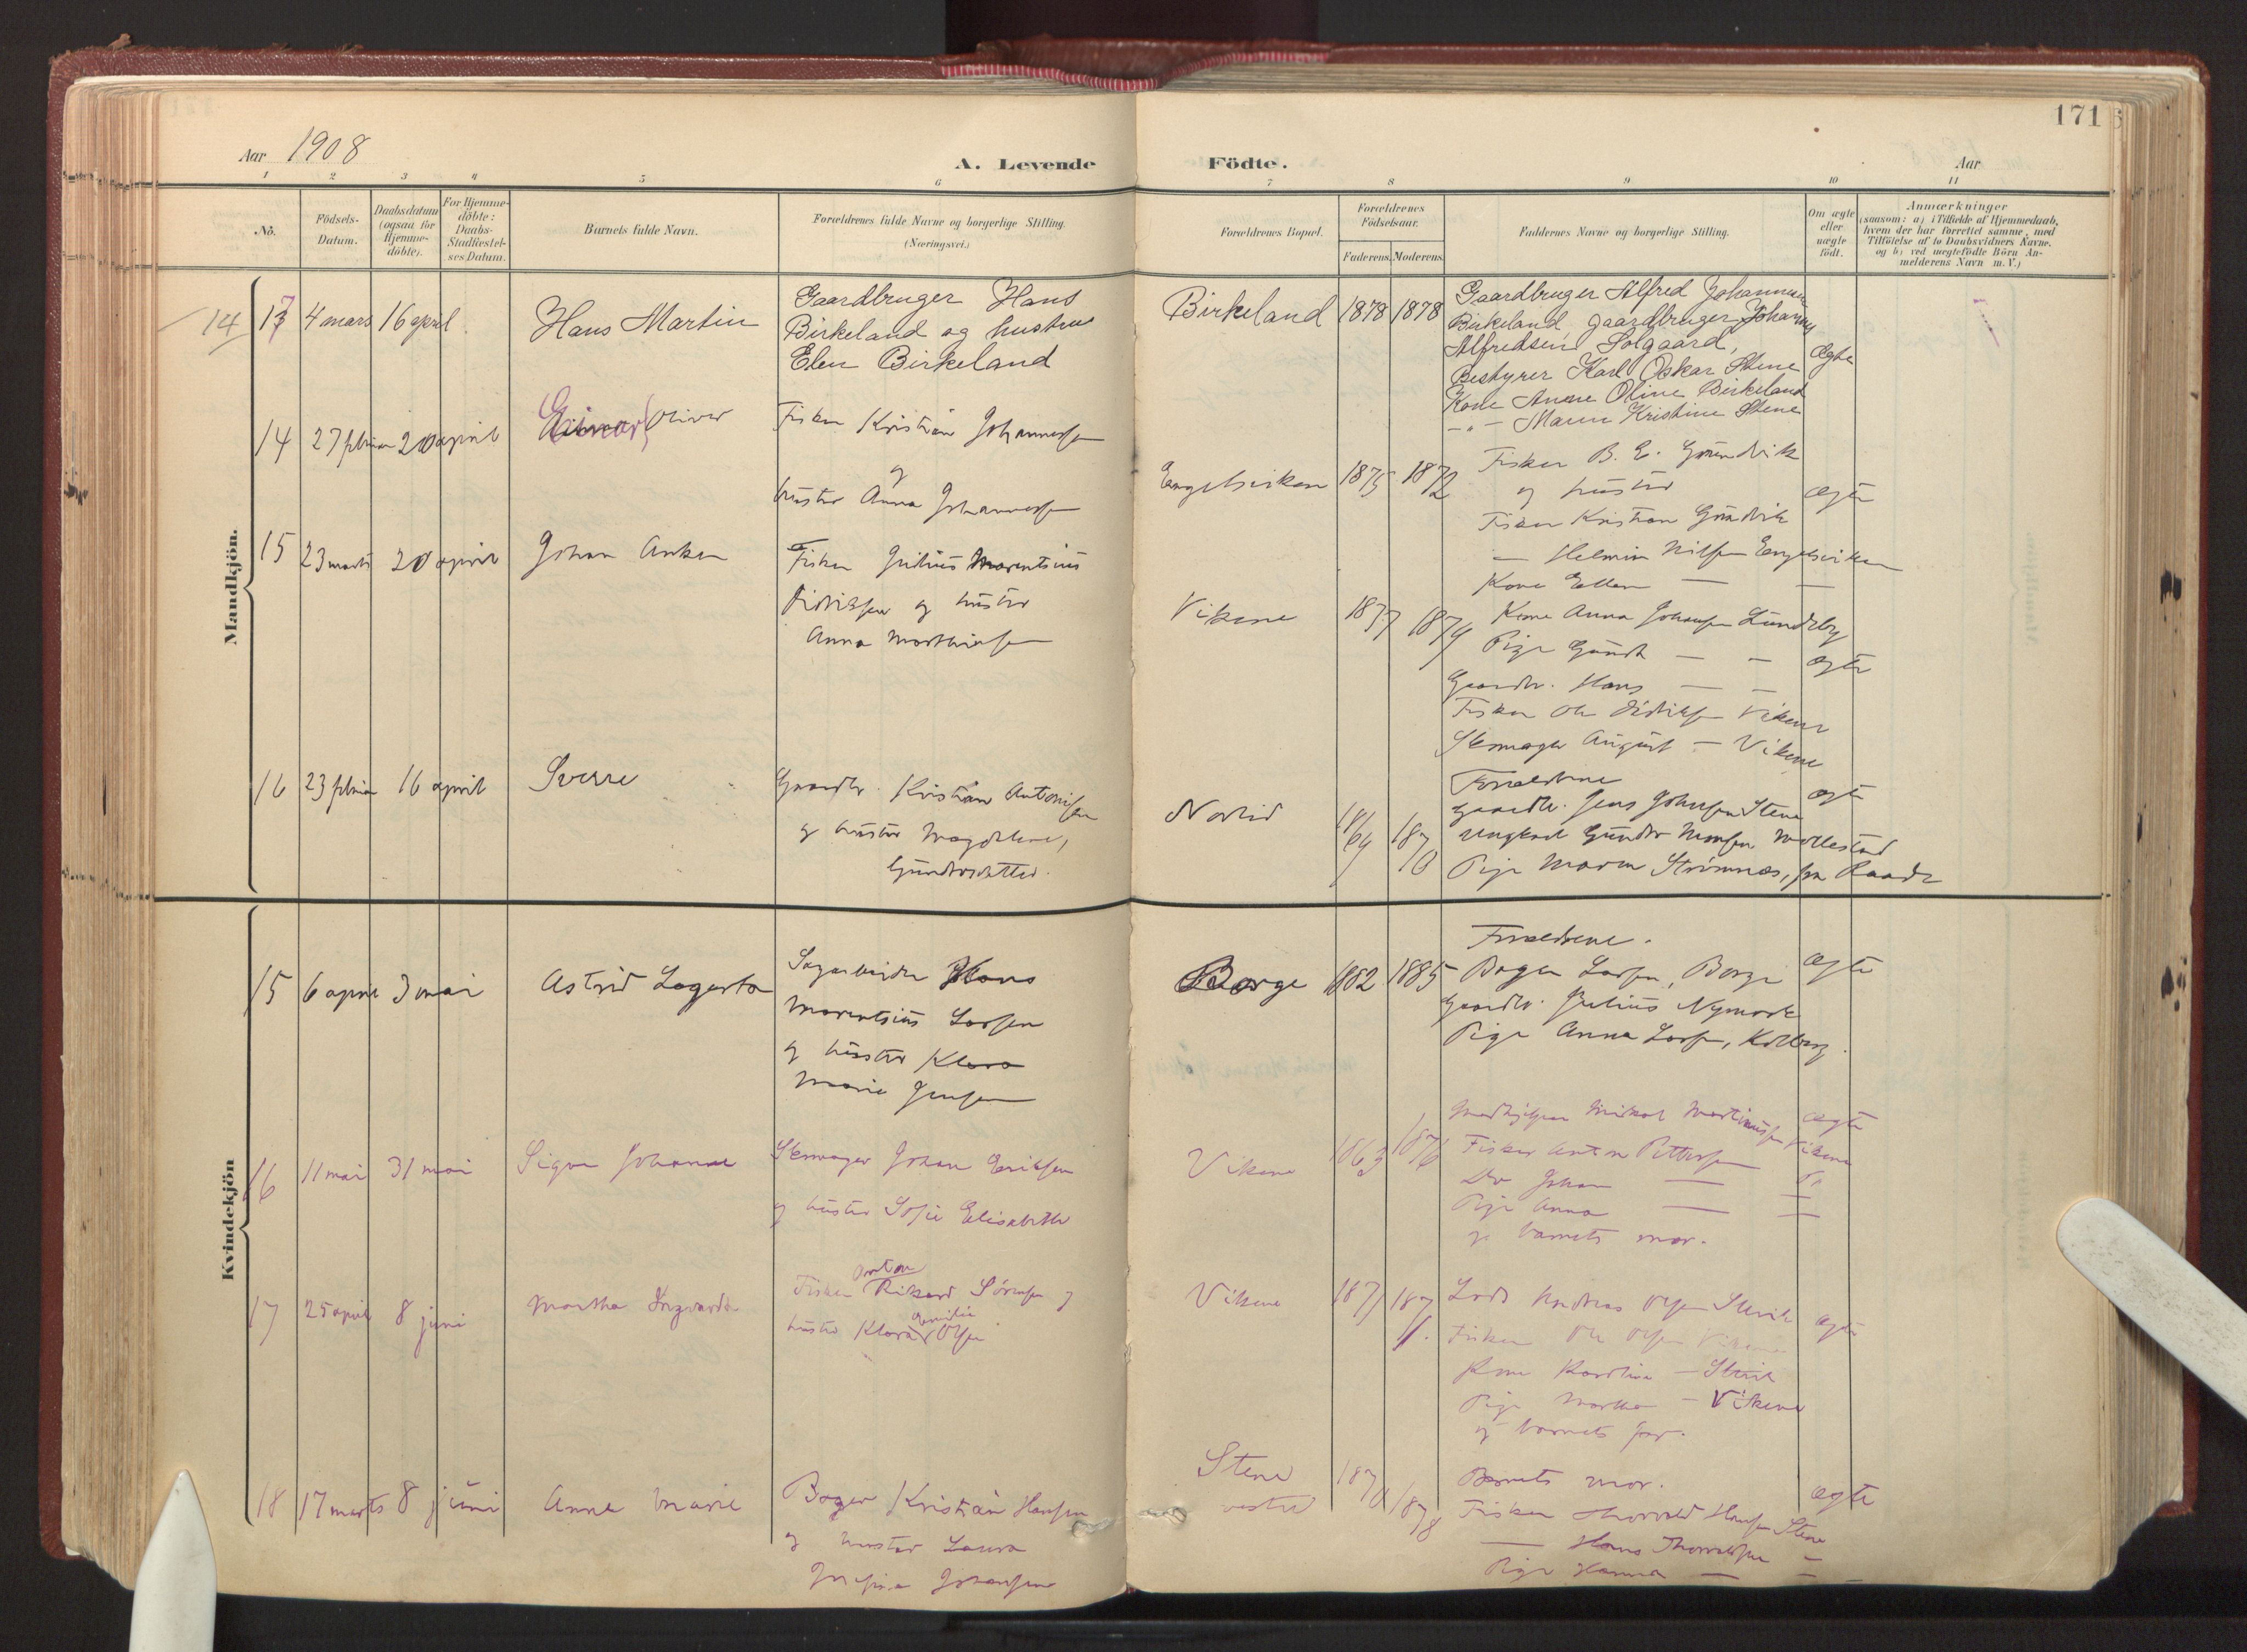 171
Aar 1908
A. Levende
Födte.
Aar
1 2 3 4 5 6 7 8 9 10 11
No.
Födsels-
Datum.
Daabsdatum
(ogsaa for
Hjemme-
döbte).
For Hjemme-
döbte:
Daabs-
Stadfæstel-
ses Datum.
Barnets fulde Navn.
Forældrenes fulde Navne og borgerlige Stilling.
(Næringsvei.)
Forældrenes Bopæl.
Forældrenes
Födselsaar.
Faderens. Moderens.
Faddernes Navne og borgerlige Stilling.
Om ægte
eller
uægte
födt.
Anmærkninger
(saasom: a) i Tilfælde af Hjemmedaab,
hvem der har forrettet samme, med
Tilföielse af to Daabsvidners Navne.
og b) ved uegtefödte Börn An-
melderens Navn m. V.)
Mandkjön.
14 13 4 mars 16 april
Hans Martin
Gaardbruger Hans
Birkeland og hustru
Elen Birkeland
Birkeland 1878 1878
Gaardbruger Alfred Johannsen
Birkeland, gaardbruger Johannes
Alfredsen Solgaard,
Bestyrer Karl Oskar Stene
Kone Anne Oline Birkeland
-"- Maren Kristine Stene
Ægte
14 27 februar 20 april
Einar Oliver
Fisker Kristian Johannessen
og
hustru Anna Johannessen
Engelsviken 1875 1872
Fisker B. E.
og hustru
Fisker Kristian
— Helmin Nilsen Engelsviken
Kone Ellen — —
ægte
15 23 marts 20 april
Johan Anker
Fisker Julius Marentsius
Didriksen og hustru
Anna Marthinsen
Vikene 1877 1874
Kone Anna Johansen Lundeby
Pige — —
Gaardbr. Hans — —
Fisker Ole Didriksen Vikene
Skomager August — Vikene
ægte
16 23 februar 16 april
Sverre
Gaardbr. Kristian Antonisen
og hustru Magdelene,
Gundersdatter.
Norlid 1864 1870
Forældrene
Gaardbr. Jens Johnsen Stene
Ungkarl Gunder Monsen
Pige Maren Strömnæs, fra Raade
ægte
Kvindekjön
15 6 april 3 mai
Astrid Lagerta
Sagarbeider Hans
Marentsius Larsen
og hustru Klara
Marie Jensen
Borge 1882 1885
Forældrene.
Bager Larsen, Borge
Gaardbr. Julius Nymark
Pige Anna Larsen, Kolberg.
ægte
16 11 mai 31 mai
Signe Johanne
Skomager Johan Eriksen
og hustru Sofie Elisabeth
Vikene 1863 1876
Mikal Martinussen Vikene
Fisker Anton Pettersen
Johan —
Pige Anna — —
og barnets mor.
ægte
17 25 april 8 juni
Martha Ingvarda
Fisker Anton Rikard Sörensen og
hustru Klara Amilie Olsen
Vikene 1871 1871.
Lods Andreas Olsen
Fisker Ole Olsen Vikene
Kone —
Pige Martha — Vikene
og barnets far.
ægte
18 17 marts 8 juni
Anna Marie
Bager Kristian Hansen
og hustru Laura
Josefine Johansen
Stene
vestre
1870 1878
Barnets mor.
Fisker Thorvald Hansen Stene
— Hans Thorvaldsen —
Pige Hanna — —
ægte